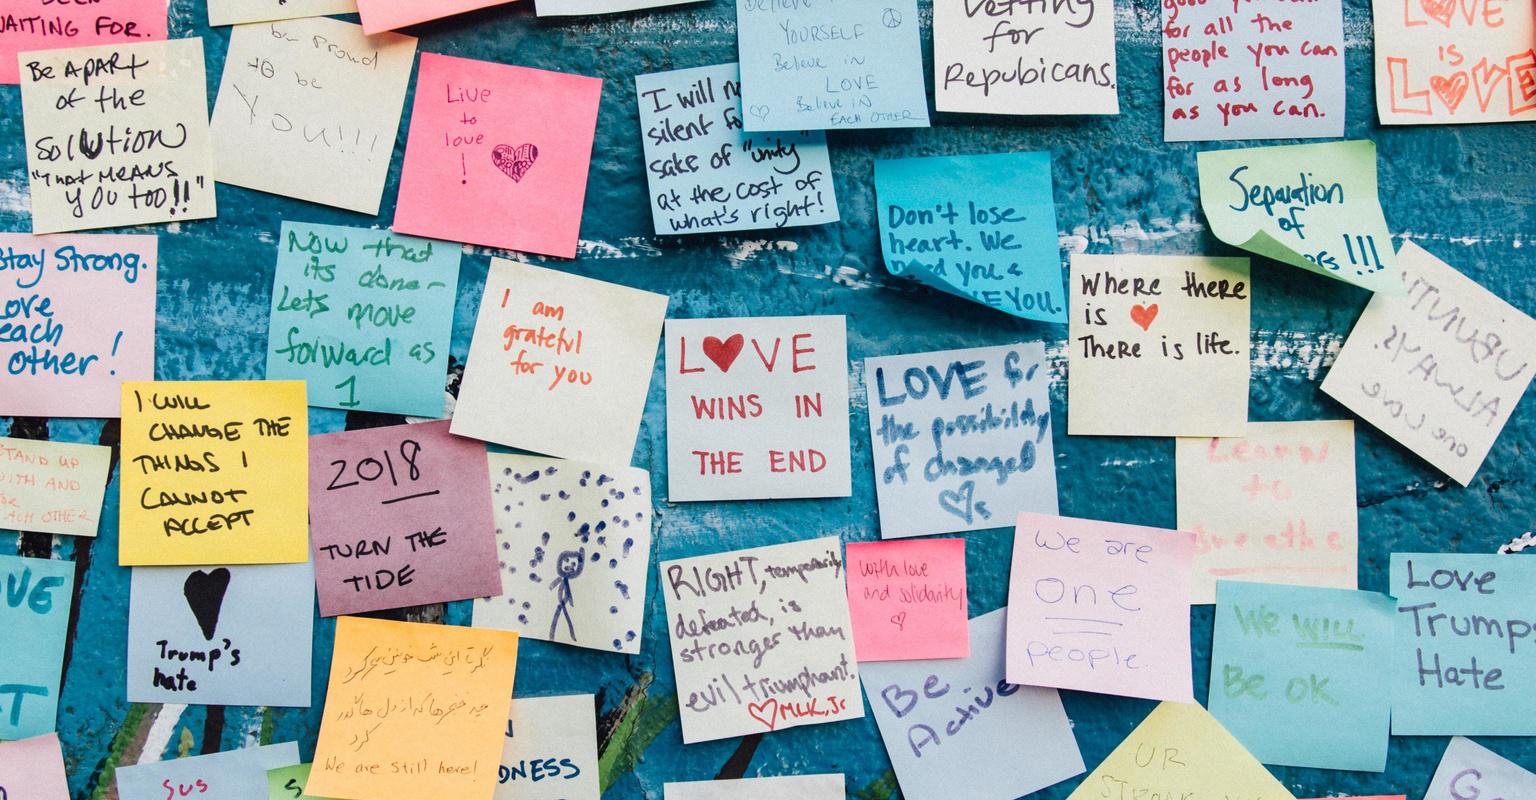 BEEN
WAITING FOR.
BE APART
of the
SOLUTION
"THAT MEANS
YOU TOO!!"
be Proud
to be
You!!!
Live
to
love
!
I will
silent
sake of "unity"
at the cost of
what's right!
Believe in
YOURSELF
Believe in
LOVE
Believe IN
EACH OTHER
Vetting
for
Repubicans.
good you can
for all the
people you can
for as long
as you can.
LOVE
IS
LOVE
Don't lose
heart. We
need you &
WE YOU.
Separation
of
!!!
Stay Strong.
Love
each
other!
Now that
its done-
Lets move
forward as
1
I am
grateful
for you
LOVE
WINS IN
THE END
LOVE for
the possibility
of changed
Where there
is ❤
There is life.
UBUNTU
ALWAYS.
one love
I WILL
CHANGE THE
THINGS I
CANNOT
ACCEPT
STAND UP
WITH AND
FOR
EACH OTHER
2018
TURN THE
TIDE
Learn
to
Breathe
RIGHT, temporarily
defeated, is
stronger than
evil triumphant.
♡MLK,Jr
With love
and solidarity
We are
one
people.
Love
Trump
Hate
We WILL
Be OK
Trump's
hate
Be
Active
نگر تا این شب خونین سحر کرد
چه خنجرها که از دل‌ها گذر
کرد
We are still here!
DNESS
UR
STRONG
sus
S
G